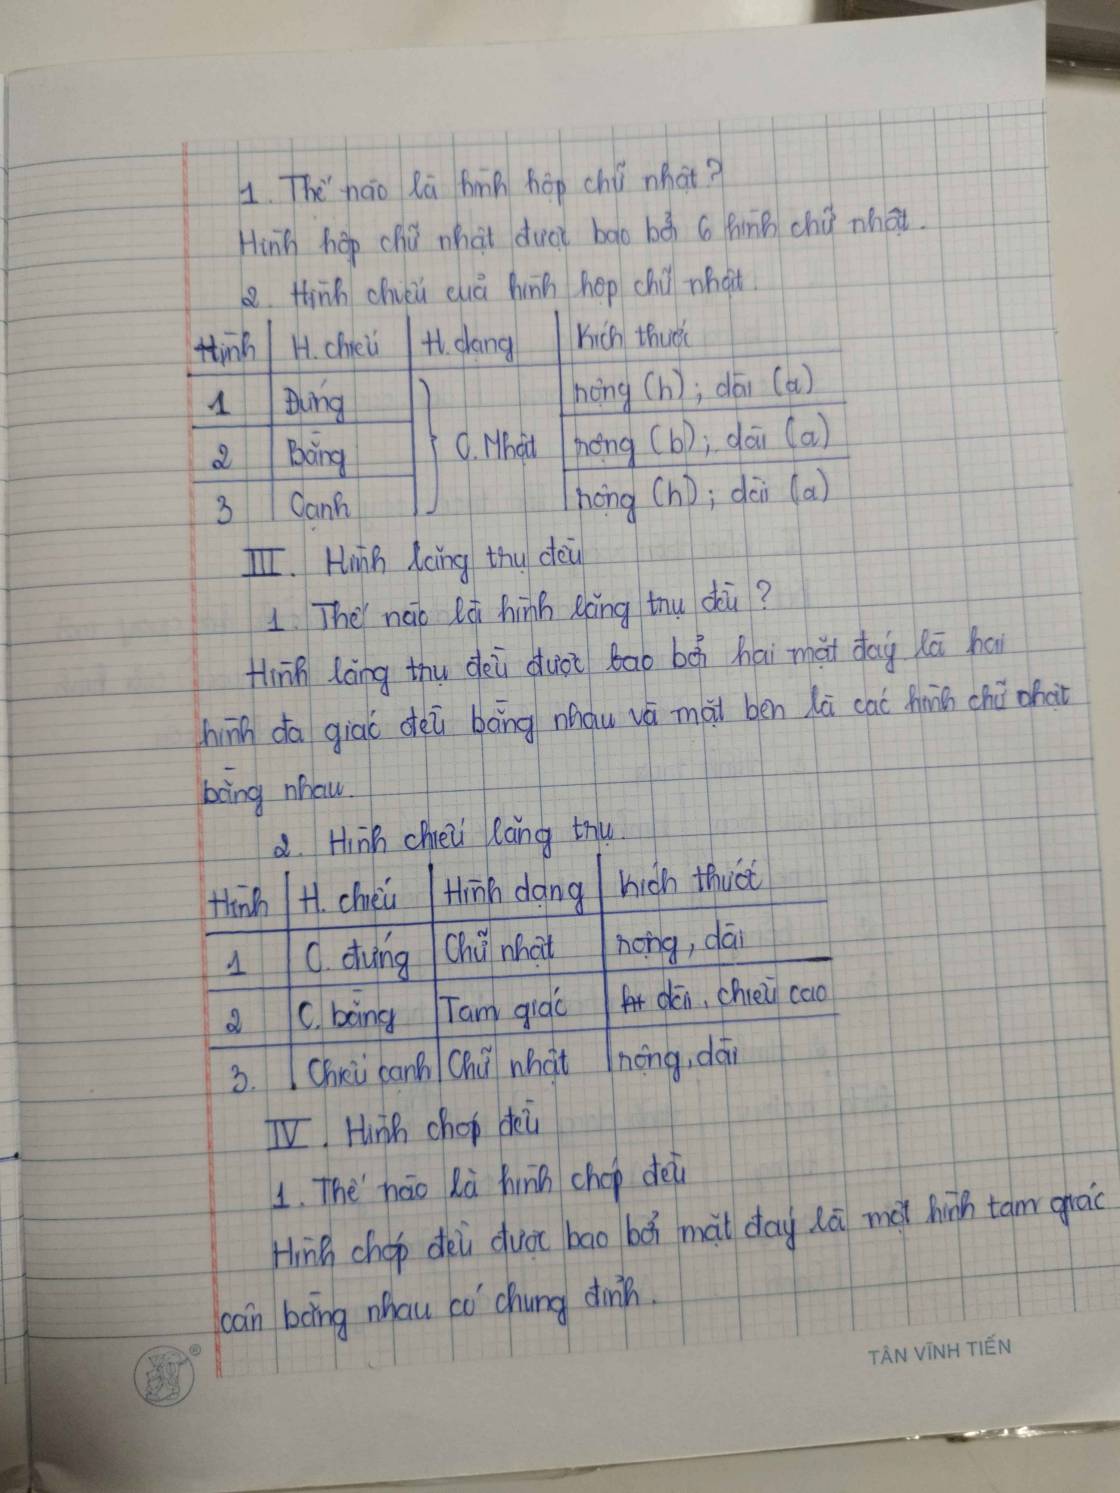 1. Thế nào là hình hộp chữ nhật?
Hình hộp chữ nhật được bao bởi 6 hình chữ nhật.
2. Hình chiếu của hình hộp chữ nhật.
Hình | H. chiếu | H. dạng | Kích thước
1 | Đứng | C. Nhật | rộng (h); dài (a)
2 | Bằng | rộng (b); dài (a)
3 | Cạnh | rộng (h); dài (a)
III. Hình lăng trụ đều
1. Thế nào là hình lăng trụ đều?
Hình lăng trụ đều được bao bởi hai mặt đáy là hai
hình đa giác đều bằng nhau và mặt bên là các hình chữ nhật
bằng nhau.
2. Hình chiếu lăng trụ.
Hình | H. chiếu | Hình dạng | Kích thước
1 | C. đứng | Chữ nhật | rộng, dài
2 | C. bằng | Tam giác | dài, chiều cao
3. | Chiếu cạnh | Chữ nhật | rộng, dài
IV. Hình chóp đều
1. Thế nào là hình chóp đều
Hình chóp đều được bao bởi mặt đáy là một hình tam giác
cân bằng nhau có chung đỉnh.
TÂN VĨNH TIẾN